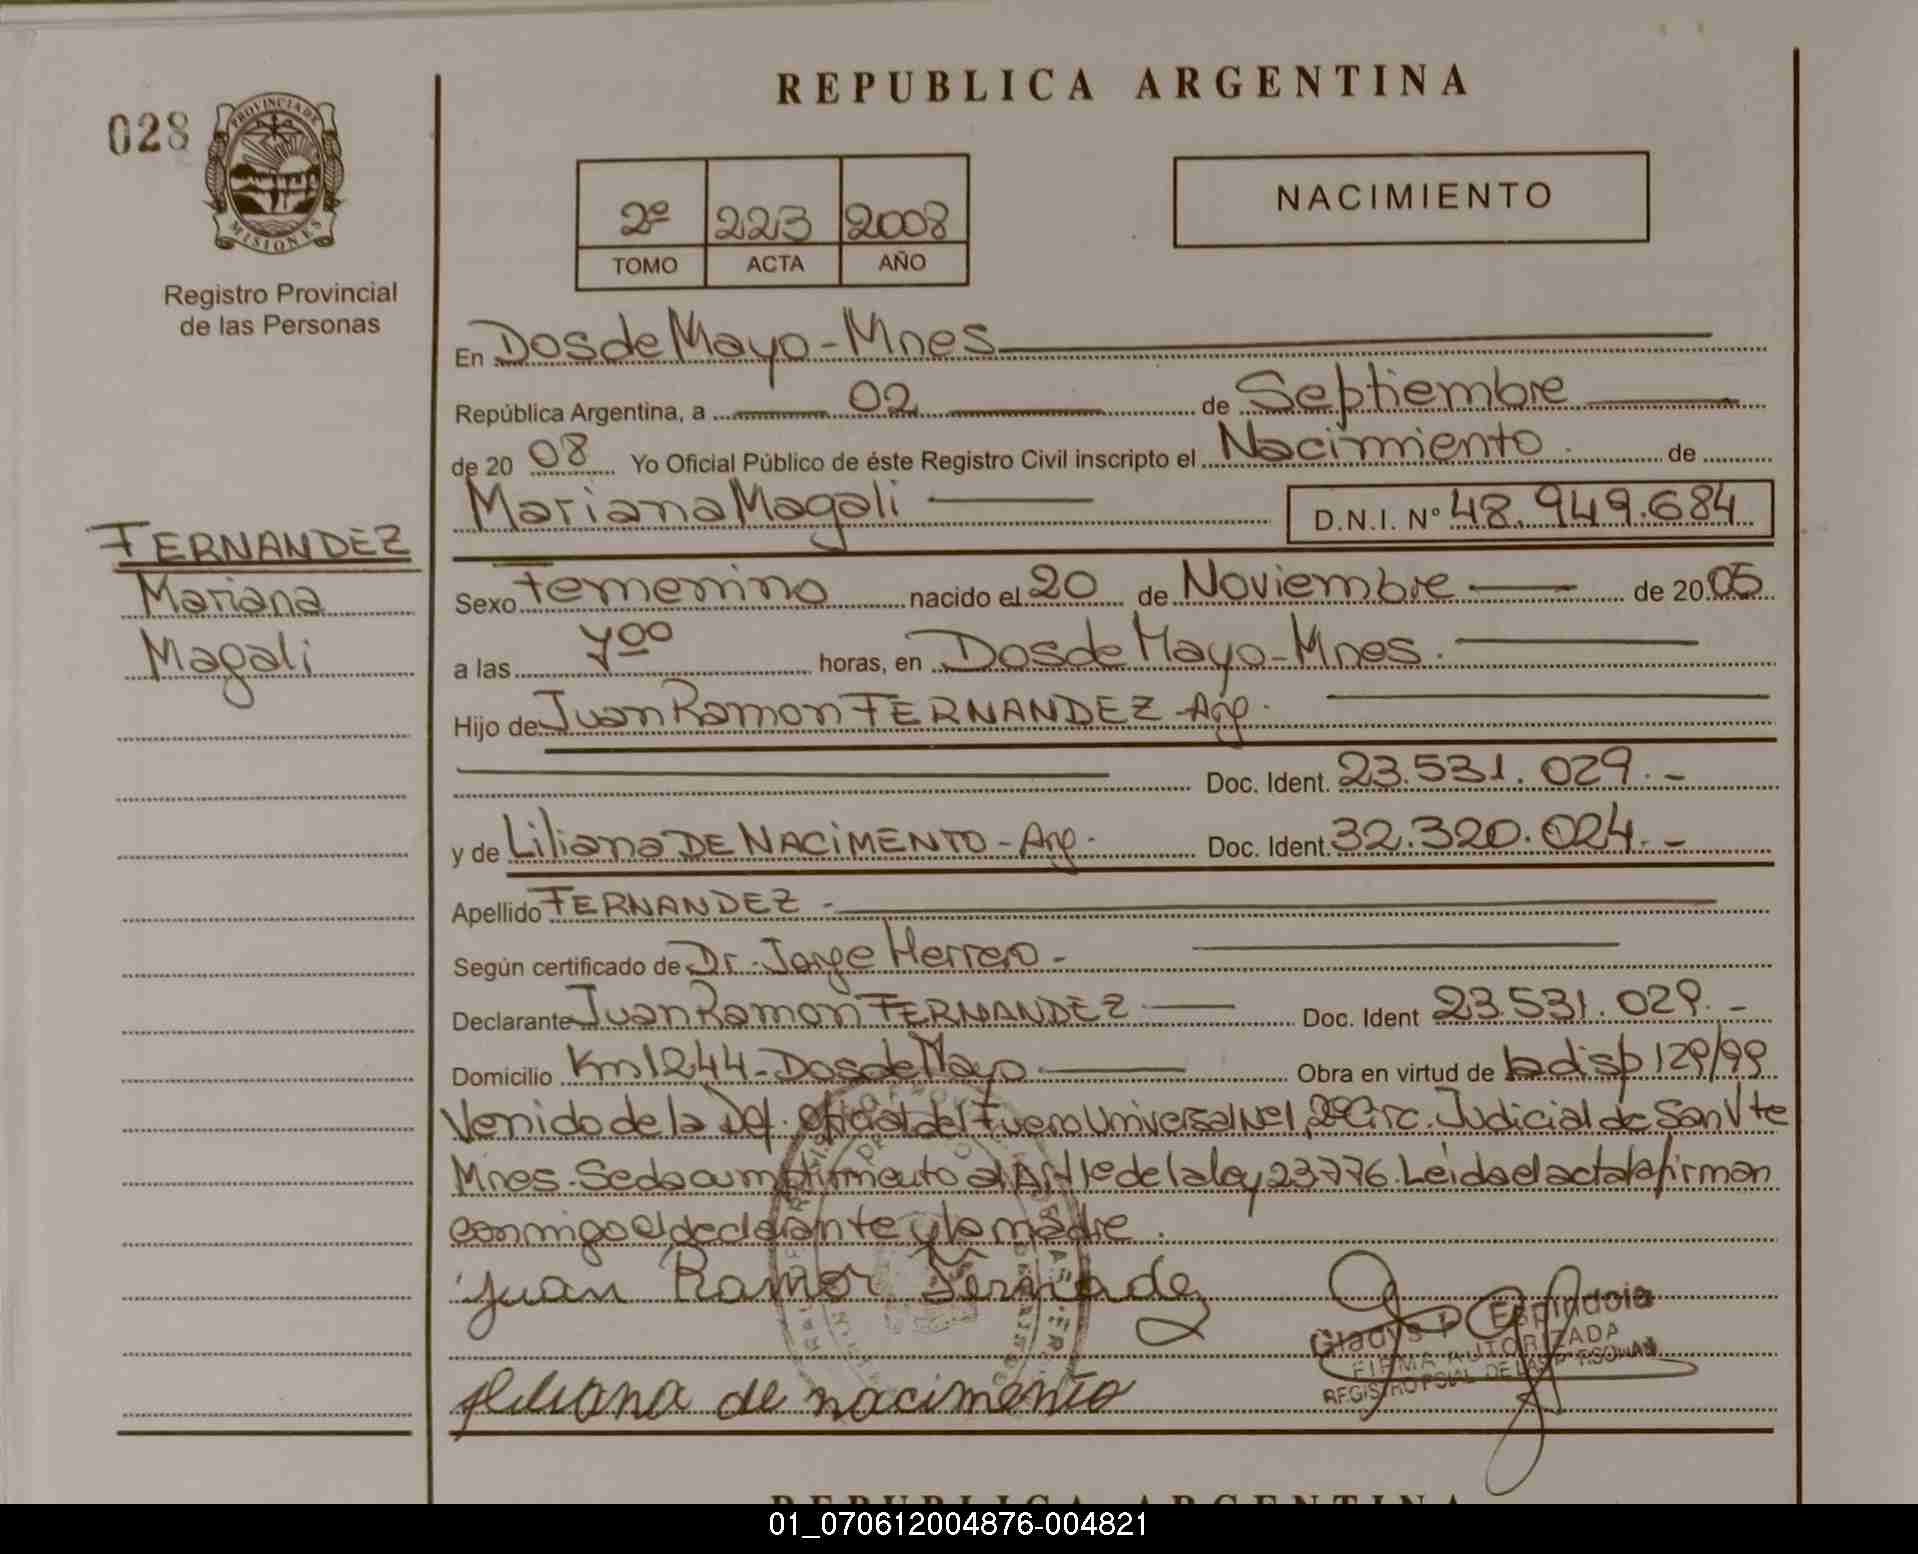 REPUBLICA ARGENTINA
028
PROVINCIA DE
MISIONES
Registro Provincial
de las Personas
NACIMIENTO
2º 223 2008
TOMO ACTA AÑO
En Dos de Mayo - Mnes
República Argentina, a 02 de Septiembre
de 20 08 Yo Oficial Público de éste Registro Civil inscripto el Nacimiento de
Mariana Magali D.N.I. Nº 48.949.684
FERNANDEZ
Mariana
Magali
Sexo Femenino nacido el 20 de Noviembre de 20 05
a las 7ºº horas, en Dos de Mayo - Mnes.
Hijo de Juan Ramon FERNANDEZ - Arg.
Doc. Ident. 23.531.029.-
y de Liliana DE NACIMENTO - Arg. Doc. Ident. 32.320.024.-
Apellido FERNANDEZ -
Según certificado de Dr. Jorge Herrero -
Declarante Juan Ramon FERNANDEZ Doc. Ident 23.531.029.-
Domicilio Km 1244 - Dos de Mayo Obra en virtud de la disp 129/99
Venido de la Def. oficial del Fuero Universal Nº1, 2º Circ. Judicial de San Vte
Mnes. Se da cumplimiento al Art 1º de la ley 23776. Leida el acta la firman
conmigo el declarante y la madre.
Juan Ramon
Liliana de nacimento
Gladys Espindola
FIRMA AUTORIZADA
REGISTRO PCIAL DE LAS PERSONAS
REPUBLICA ARGENTINA
01_070612004876-004821